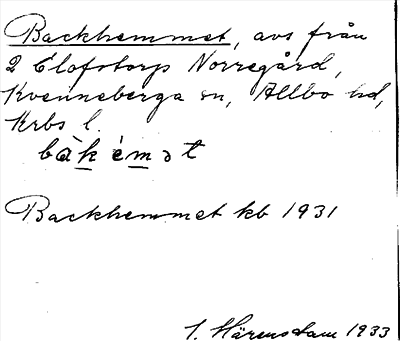 Backhemmet, avs från
2 Elofstorp Norregård,
Kvenneberga sn, Allbo hd,
Krbs l.
bàk émət
Backhemmet kb 1931
I. Härensdam 1933